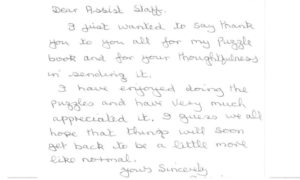 Dear Assist Staff.
I just wanted to say thank
you to you all for my Puzzle
book and for your thoughtfulness
in sending it.
I have enjoyed doing the
puzzles and have very much
appreciated it. I guess we all
hope that things will soon
get back to be a little more
like normal.
Yours Sincerely